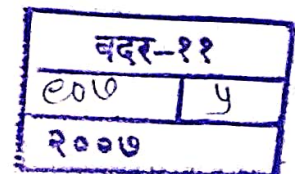 वदर-११
९०७ ५
२००७